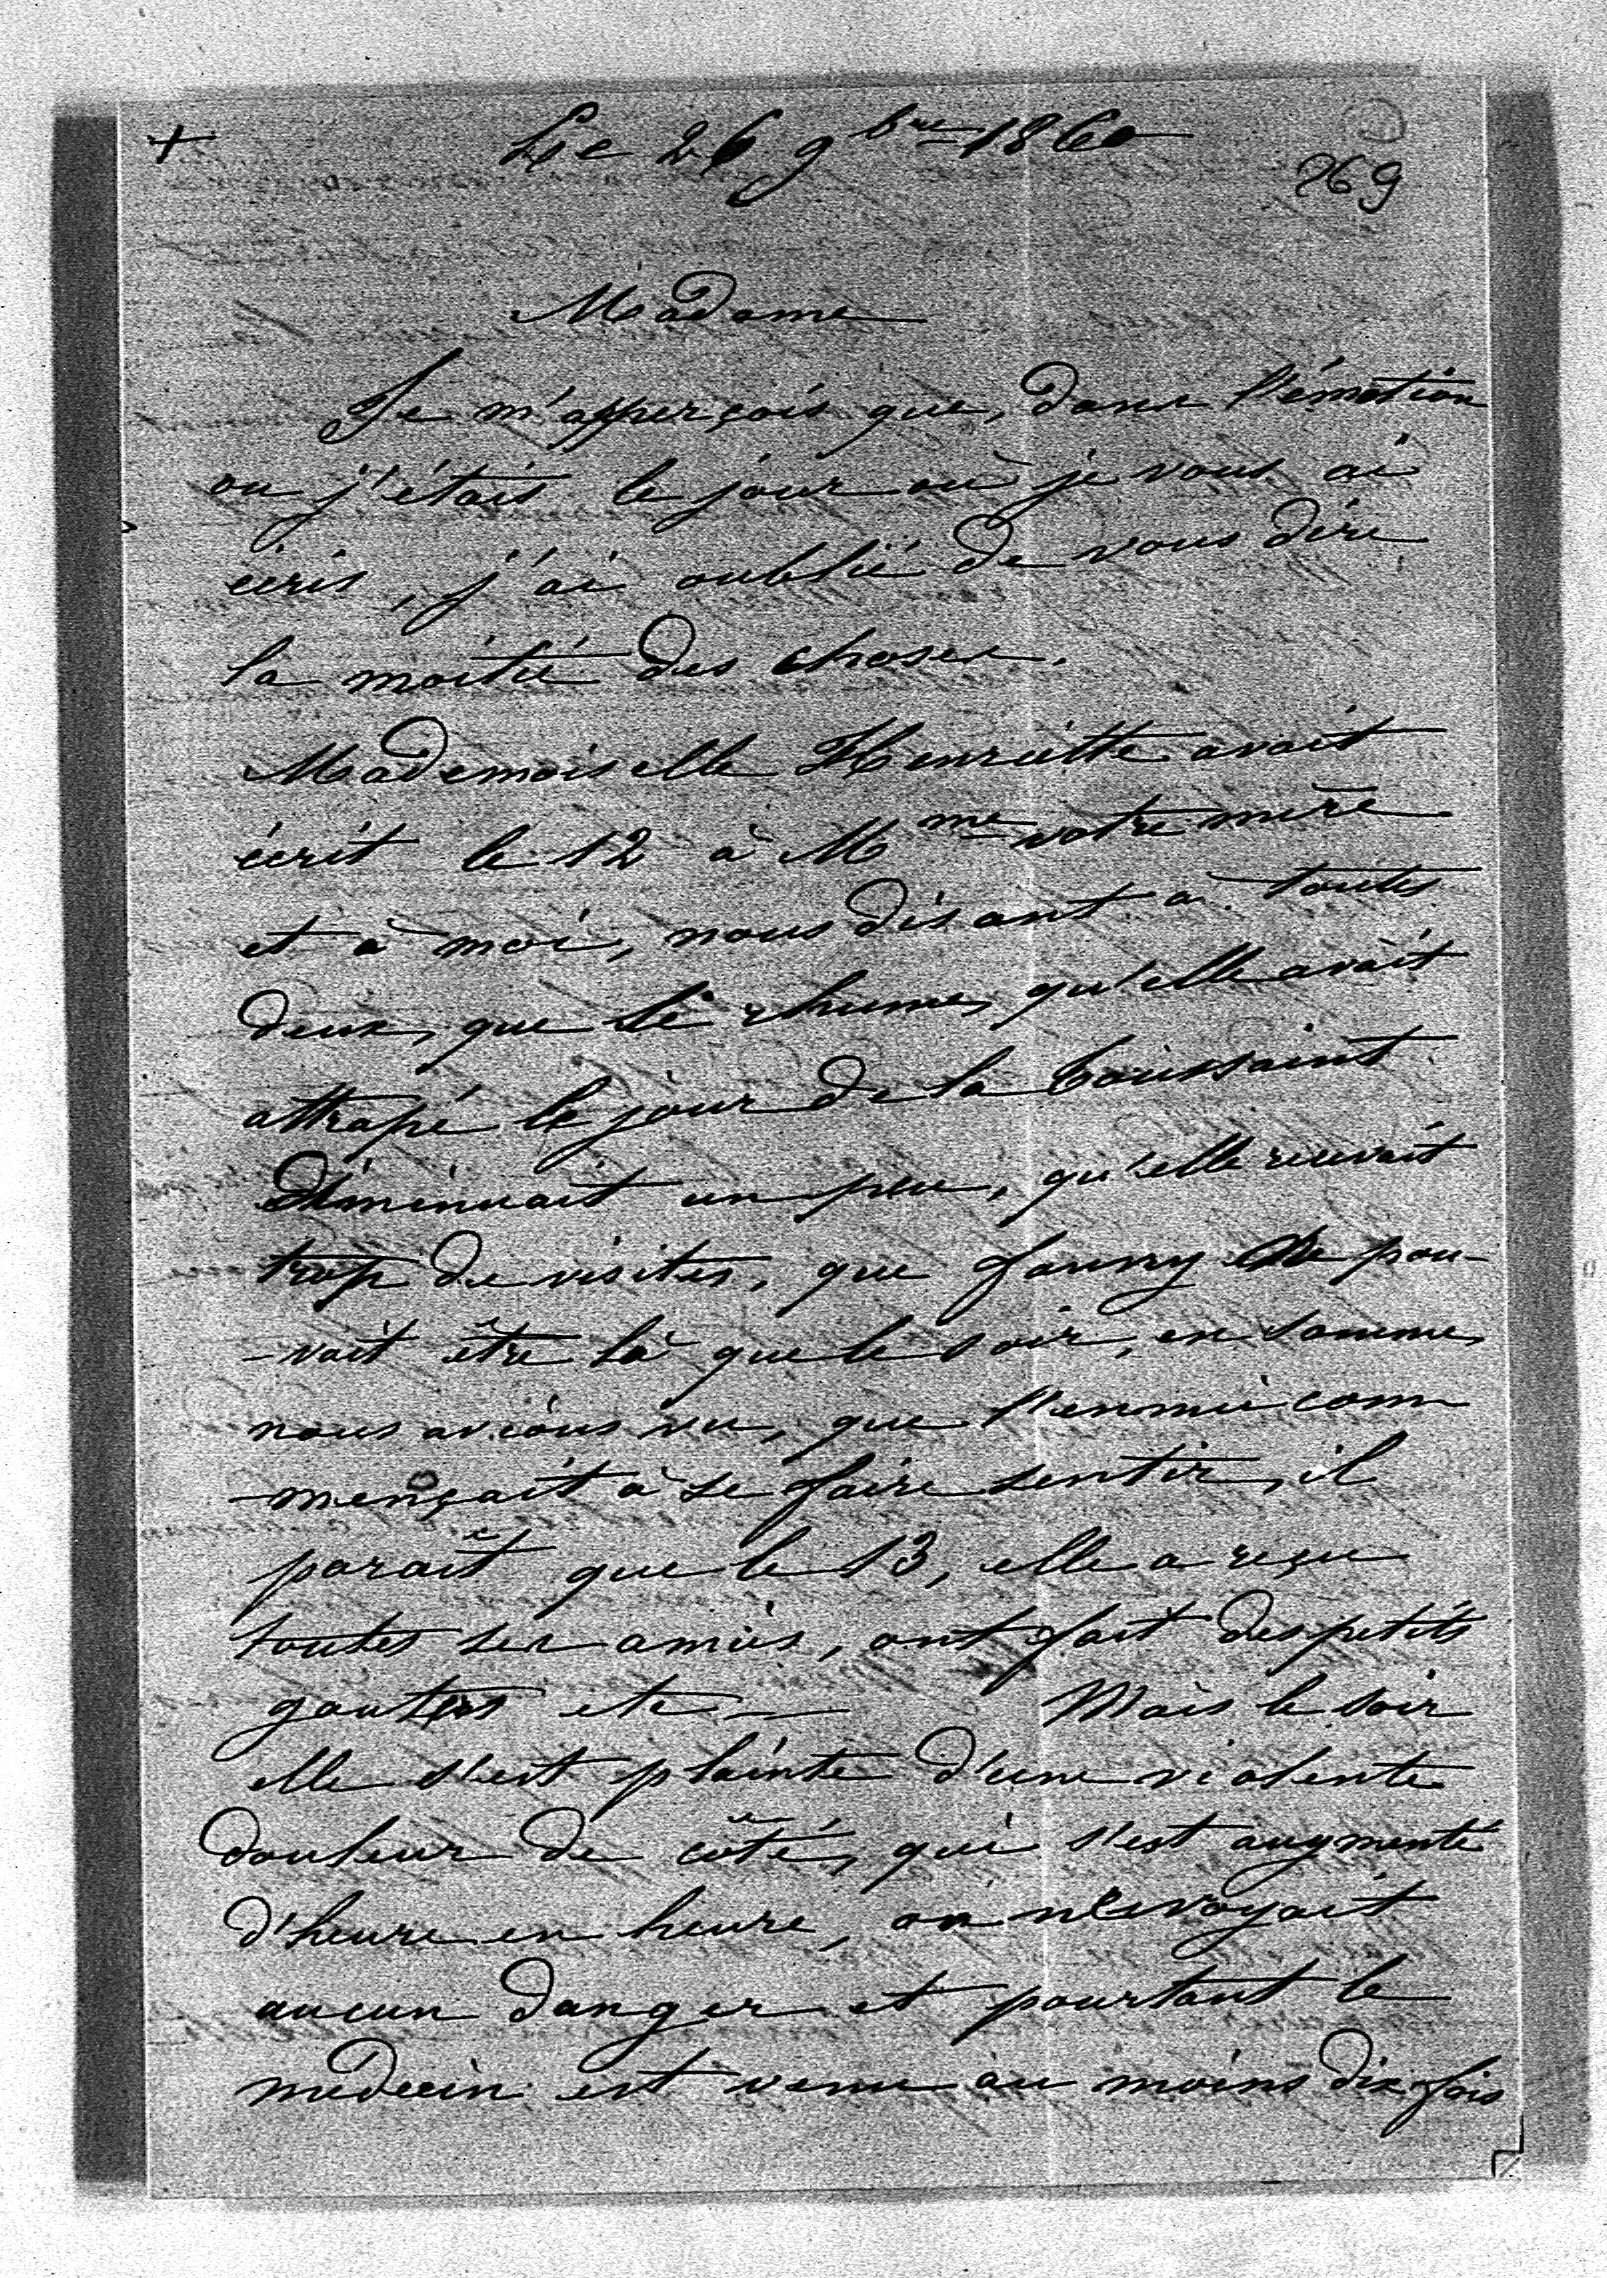 + Le 26 9bre 1860
269
Madame
Je m'apperçois que, dans l'émotion
ou j'étais le jour où je vous ai
écris, j'ai oublié de vous dire
la moitié des choses.
Mademoiselle Henriette avait
écrit le 12 à Mme votre mère
et à moi, nous disant a toutes
deux, que le rhume, qu'elle avait
attrapé le jour de la Toussaint
diminuait un peu, qu'elle recevait
trop de visites, que Fanny ne pou-
-vait être là que le soir, en somme,
nous avions vu, que l'ennui com
-mençait à se faire sentir, il
paraît que le 13, elle a reçu
toutes ses amies, ont fait des petits
gouters etc — Mais le soir
elle s'est plainte d'une violente
douleur de côté, qui s'est augmenté
d'heure en heure, on n'envoyait
aucun danger et pourtant le
medecin est venu au moins dix fois